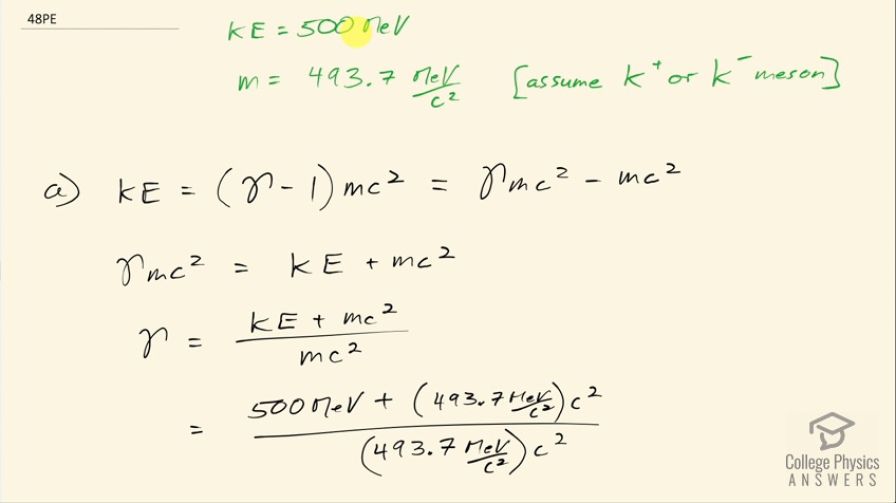 48PE
KE = 500 MeV
m = 493.7 MeV/c² [assume K⁺ or K⁻ meson]
a) KE = (γ - 1)mc² = γmc² - mc²
γmc² = KE + mc²
γ = (KE + mc²)/(mc²)
= (500 MeV + (493.7 MeV/c²)c²)/((493.7 MeV/c²)c²)
College Physics
ANSWERS